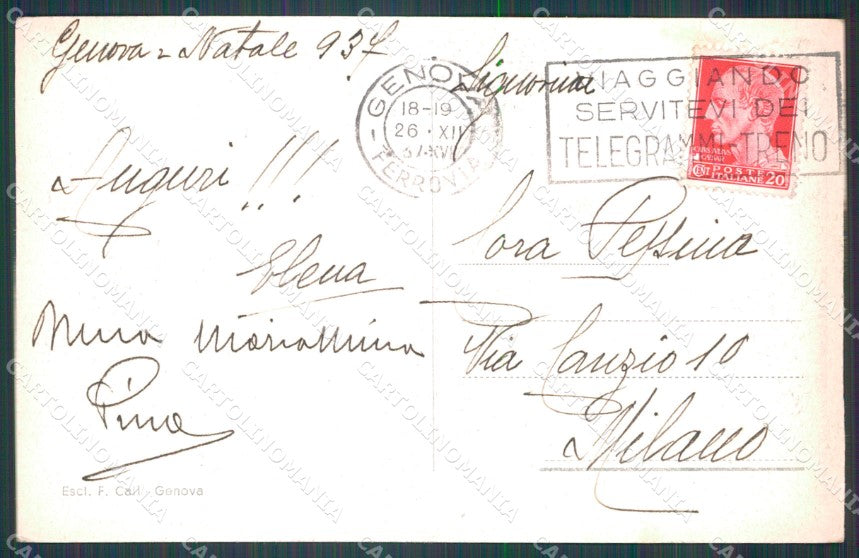 Genova = Natale 937
Auguri !!!
Elena
Nina Mariannina
Pina
Escl. F. Calì - Genova
GENOVA
18-19
26 · XII
37-XVI
FERROVIA
VIAGGIANDO
SERVITEVI DEI
TELEGRAMMI-TRENO
POSTE
ITALIANE
CENT 20
Signorina
Lora Pessina
Via Sanzio 10
Milano
CARTOLINOMANIA